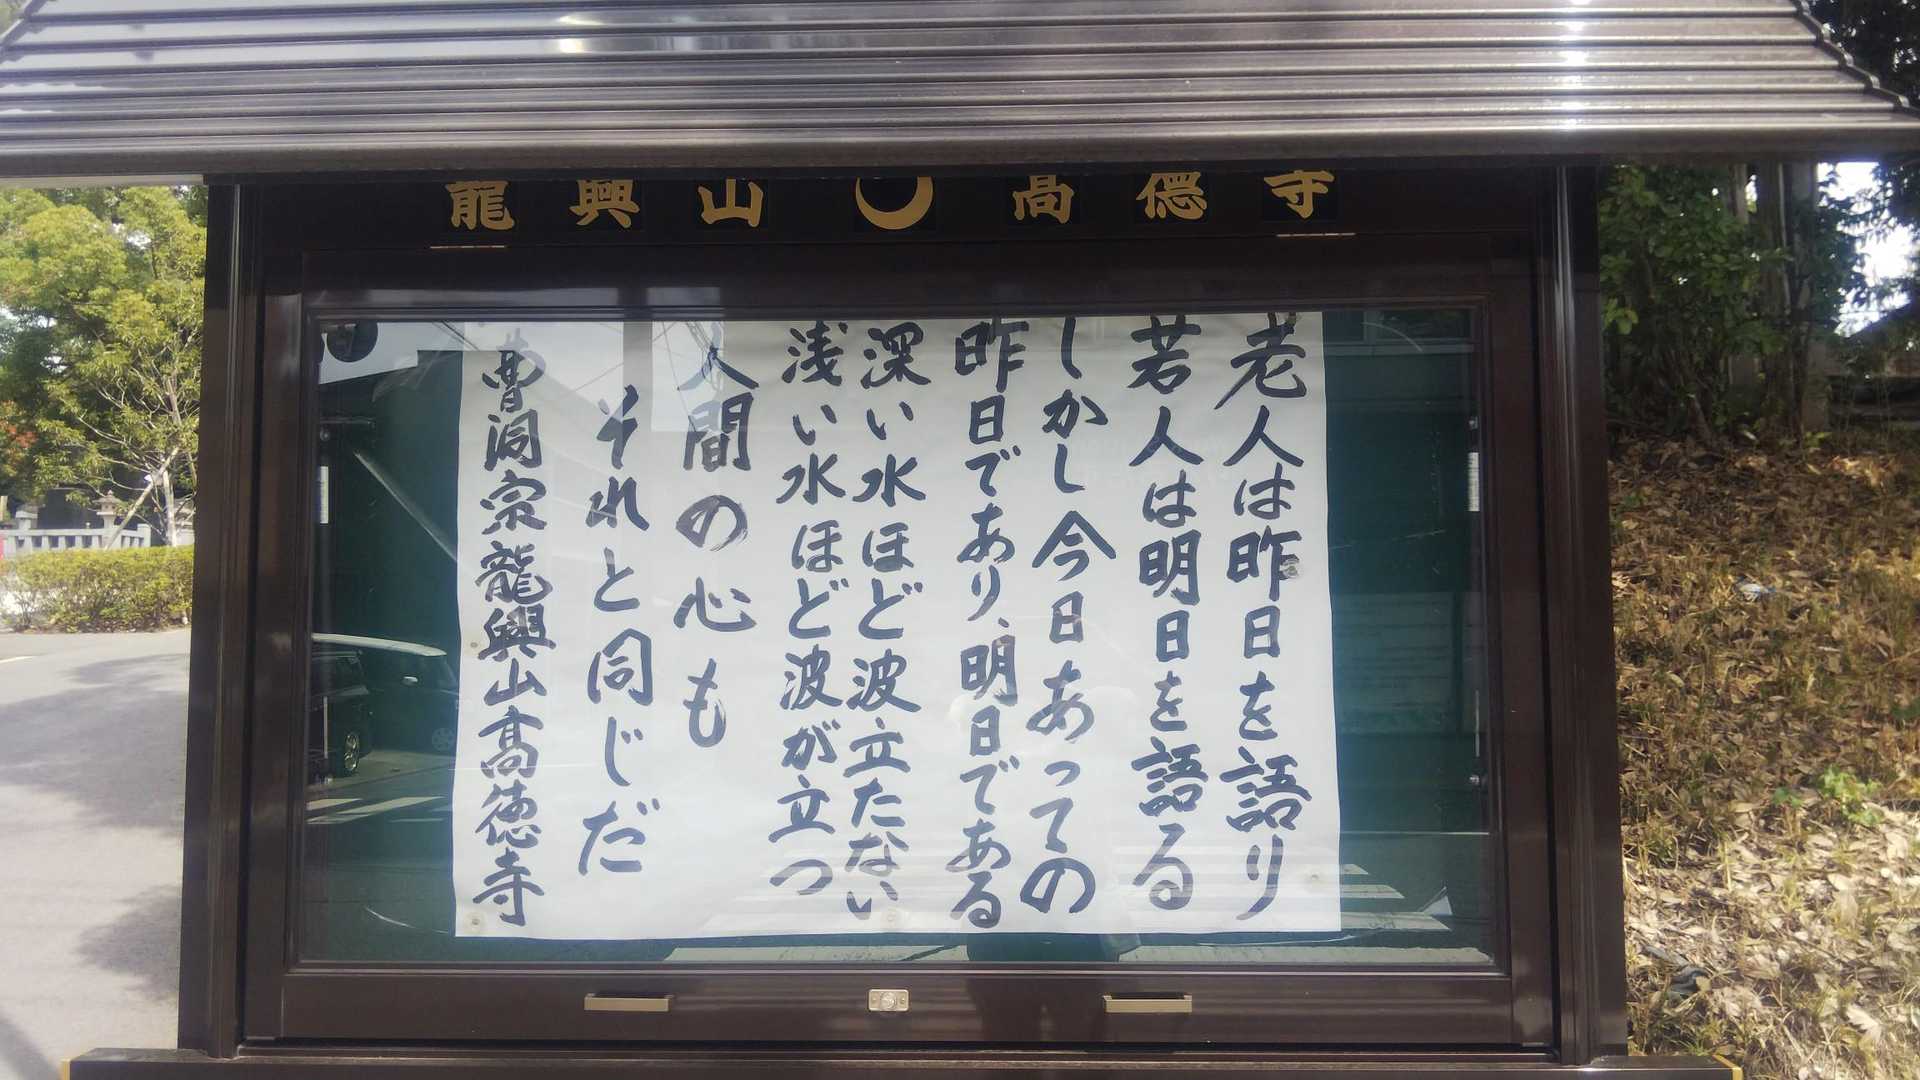 龍興山 高徳寺
老人は昨日を語り
若人は明日を語る
しかし今日あっての
昨日であり、明日である
深い水ほど波立たない
浅い水ほど波が立つ
人間の心も
それと同じだ
曹洞宗龍興山高徳寺